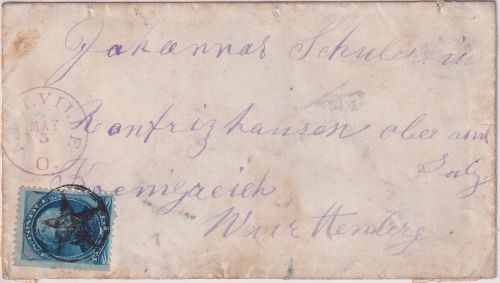 Johannas Schuler in
Ranfrizhausen ober amt
Sulz
Koenigreich
Wurttenberg
MAY
5
O.